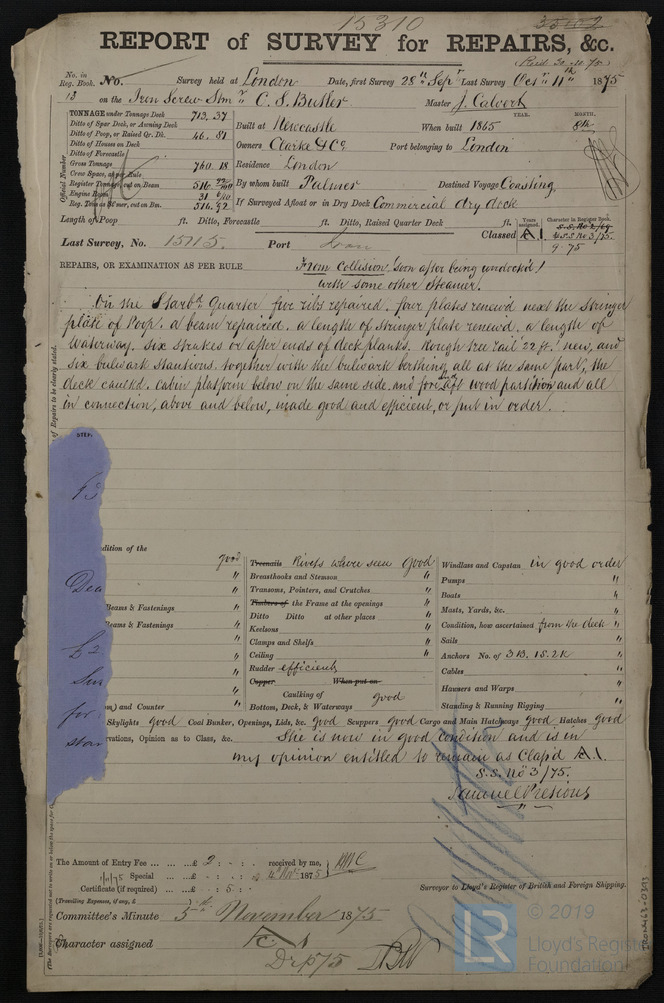 15310
35182
REPORT of SURVEY for REPAIRS, &c.
No. in Reg. Book. No. Survey held at London Date, first Survey 28th Sepr Last Survey Octr 11th 1875
13 on the Iron Screw Stmr C. S. Butler Master J. Calvert
TONNAGE under Tonnage Deck 713.37
Ditto of Spar Deck, or Awning Deck
Ditto of Poop, or Raised Qr. Dk. 46.81
Ditto of Houses on Deck
Ditto of Forecastle
Gross Tonnage 760.18
Crew Space, as per Rule
Register Tonnage, cut on Beam
Engine Room
Reg. Ton. as St'mer, cut on Bm.
Official Number
YEAR. MONTH.
Built at Newcastle When built 1865 8th
Owners Clarke & Co Port belonging to London
Residence London
By whom built Palmer Destined Voyage Coasting
If Surveyed Afloat or in Dry Dock Commercial dry dock
Length of Poop ft. Ditto, Forecastle ft. Ditto, Raised Quarter Deck ft.
Years assigned. Character in Register Book.
Classed A1 S.S. No 3/75.
9.75
Last Survey, No. 15115. Port Lon
REPAIRS, OR EXAMINATION AS PER RULE From Collision, soon after being undock'd!
with some other Steamer.
On the Starbd Quarter five ribs repaired. four plates renew'd next the Stringer
plate of Poop. a beam repaired. a length of stringer plate renew'd. a length of
waterway. six strakes or after ends of deck planks. Rough tree rail 22 ft. new, and
six bulwark stantions. together with the bulwark berthing all at the same part, the
deck caulkd. cabin platform below on the same side. and fore & aft wood partition and all
in connection, above and below, made good and efficient, or put in order.
of Repairs to be clearly stated.
STEP.
dition of the good
Beams & Fastenings "
Beams & Fastenings "
and Counter "
Treenails Rivets where seen Good
Breasthooks and Stemson "
Transoms, Pointers, and Crutches "
Timbers of the Frame at the openings "
Ditto Ditto at other places "
Keelsons "
Clamps and Shelfs "
Ceiling "
Rudder efficient
Copper When put on
Caulking of
Bottom, Deck, & Waterways Good
Windlass and Capstan in good order
Pumps "
Boats "
Masts, Yards, &c. "
Condition, how ascertained from the deck "
Sails "
Anchors No. of 3B. 1S. 2K "
Cables "
Hausers and Warps "
Standing & Running Rigging "
Skylights good Coal Bunker, Openings, Lids, &c. Good Scuppers good Cargo and Main Hatchways good Hatches Good
rvations, Opinion as to Class, &c. She is now in good condition and is in
my opinion entitled to remain as Class'd A1.
S.S. No 3/75.
Samuel Presious
The Amount of Entry Fee ... ... £ 2 : - : - received by me,
Special ... ... £ : : 4 Nov 1875
Certificate (if required) ... £ - : 5 : -
(Travelling Expenses, if any, £
Surveyor to Lloyd's Register of British and Foreign Shipping.
Committee's Minute 5th November 1875
Character assigned A1
Drp75
IRON463-0393
LR
© 2019
Lloyd's Register
Foundation